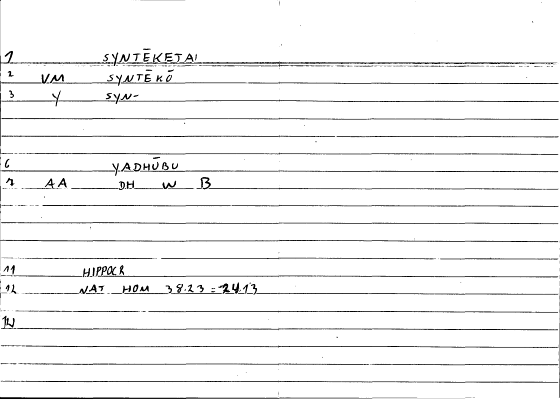 1 SYNTĒKETAI
2 VM SYNTĒKŌ
3 Y SYN-
6 YADHŪBU
7 AA DH W B
11 HIPPOCR
12 NAT HOM 38.23 = 24.13
14